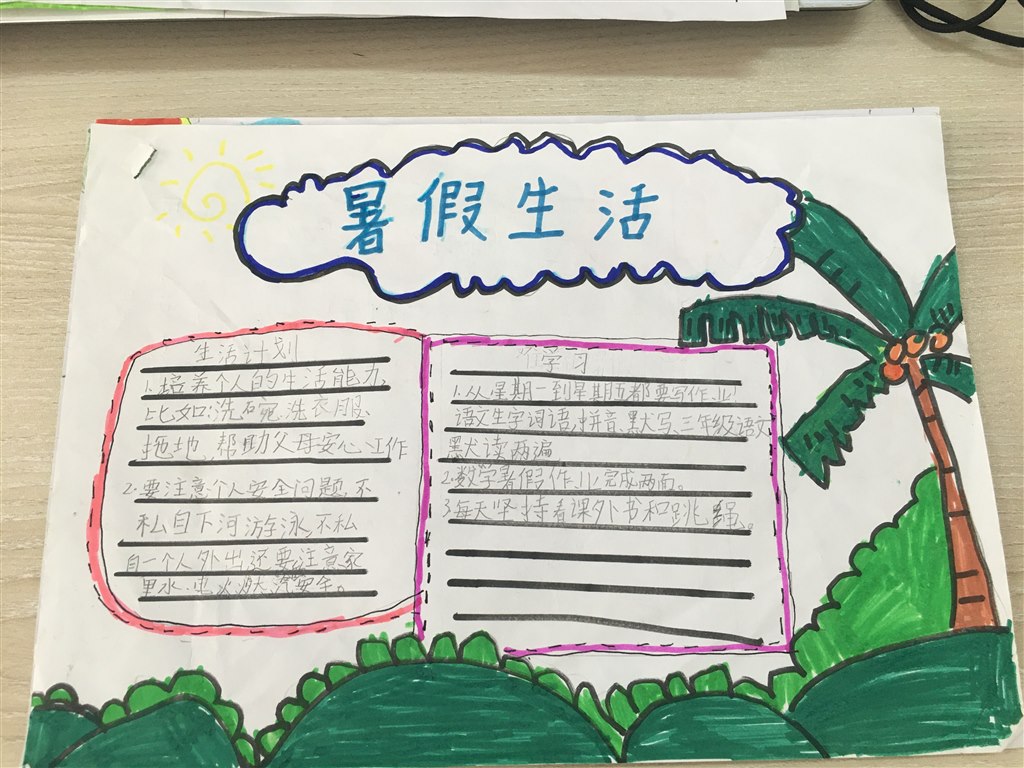 暑假生活
生活计划
1.培养个人的生活能力,
比如:洗碗、洗衣服、
拖地、帮助父母安心工作
2.要注意个人安全问题,不
私自下河游泳,不私
自一个人外出,还要注意家
里水、电、火
安全。
学习
1.从星期一到星期五都要写作业!
语文生字词语,拼音,默写,三年级语文
默读两遍
2.数学暑假作业完成两面。
3.每天坚持看课外书和跳绳。